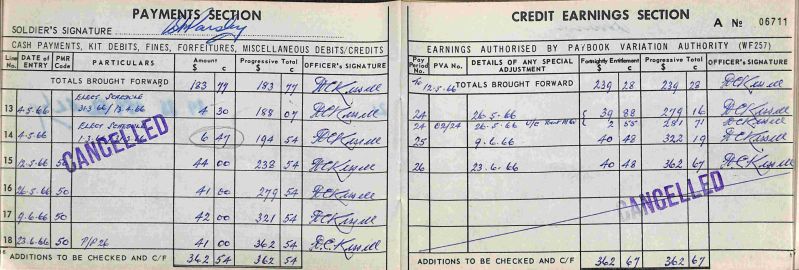 PAYMENTS SECTION
SOLDIER'S SIGNATURE
CASH PAYMENTS, KIT DEBITS, FINES, FORFEITURES, MISCELLANEOUS DEBITS/CREDITS
Line No. DATE OF ENTRY PMR Code PARTICULARS Amount $ c Progressive Total $ c OFFICER'S SIGNATURE
TOTALS BROUGHT FORWARD 183 77 183 77
13 4-5-66 31-3-66/13-4-66 4 30 188 07
14 4-5-66 6 47 194 54
15 12-5-66 50 44 00 238 54
16 26-5-66 50 41 00 279 54
17 9-6-66 50 42 00 321 54
18 23-6-66 50 P/P 26 41 00 362 54
ADDITIONS TO BE CHECKED AND C/F 362 54 362 54
CANCELLED
CREDIT EARNINGS SECTION
A No 06711
EARNINGS AUTHORISED BY PAYBOOK VARIATION AUTHORITY (WF257)
Pay Period No. PVA No. DETAILS OF ANY SPECIAL ADJUSTMENT Fortnightly Entitlement $ c Progressive Total $ c OFFICER'S SIGNATURE
TOTALS BROUGHT FORWARD
To 12-5-66 239 28 239 28
24 26-5-66 39 88 279 16
24 02/24 26-5-66 2 55 281 71
25 9-6-66 40 48 322 19
26 23-6-66 40 48 362 67
CANCELLED
ADDITIONS TO BE CHECKED AND C/F 362 67 362 67